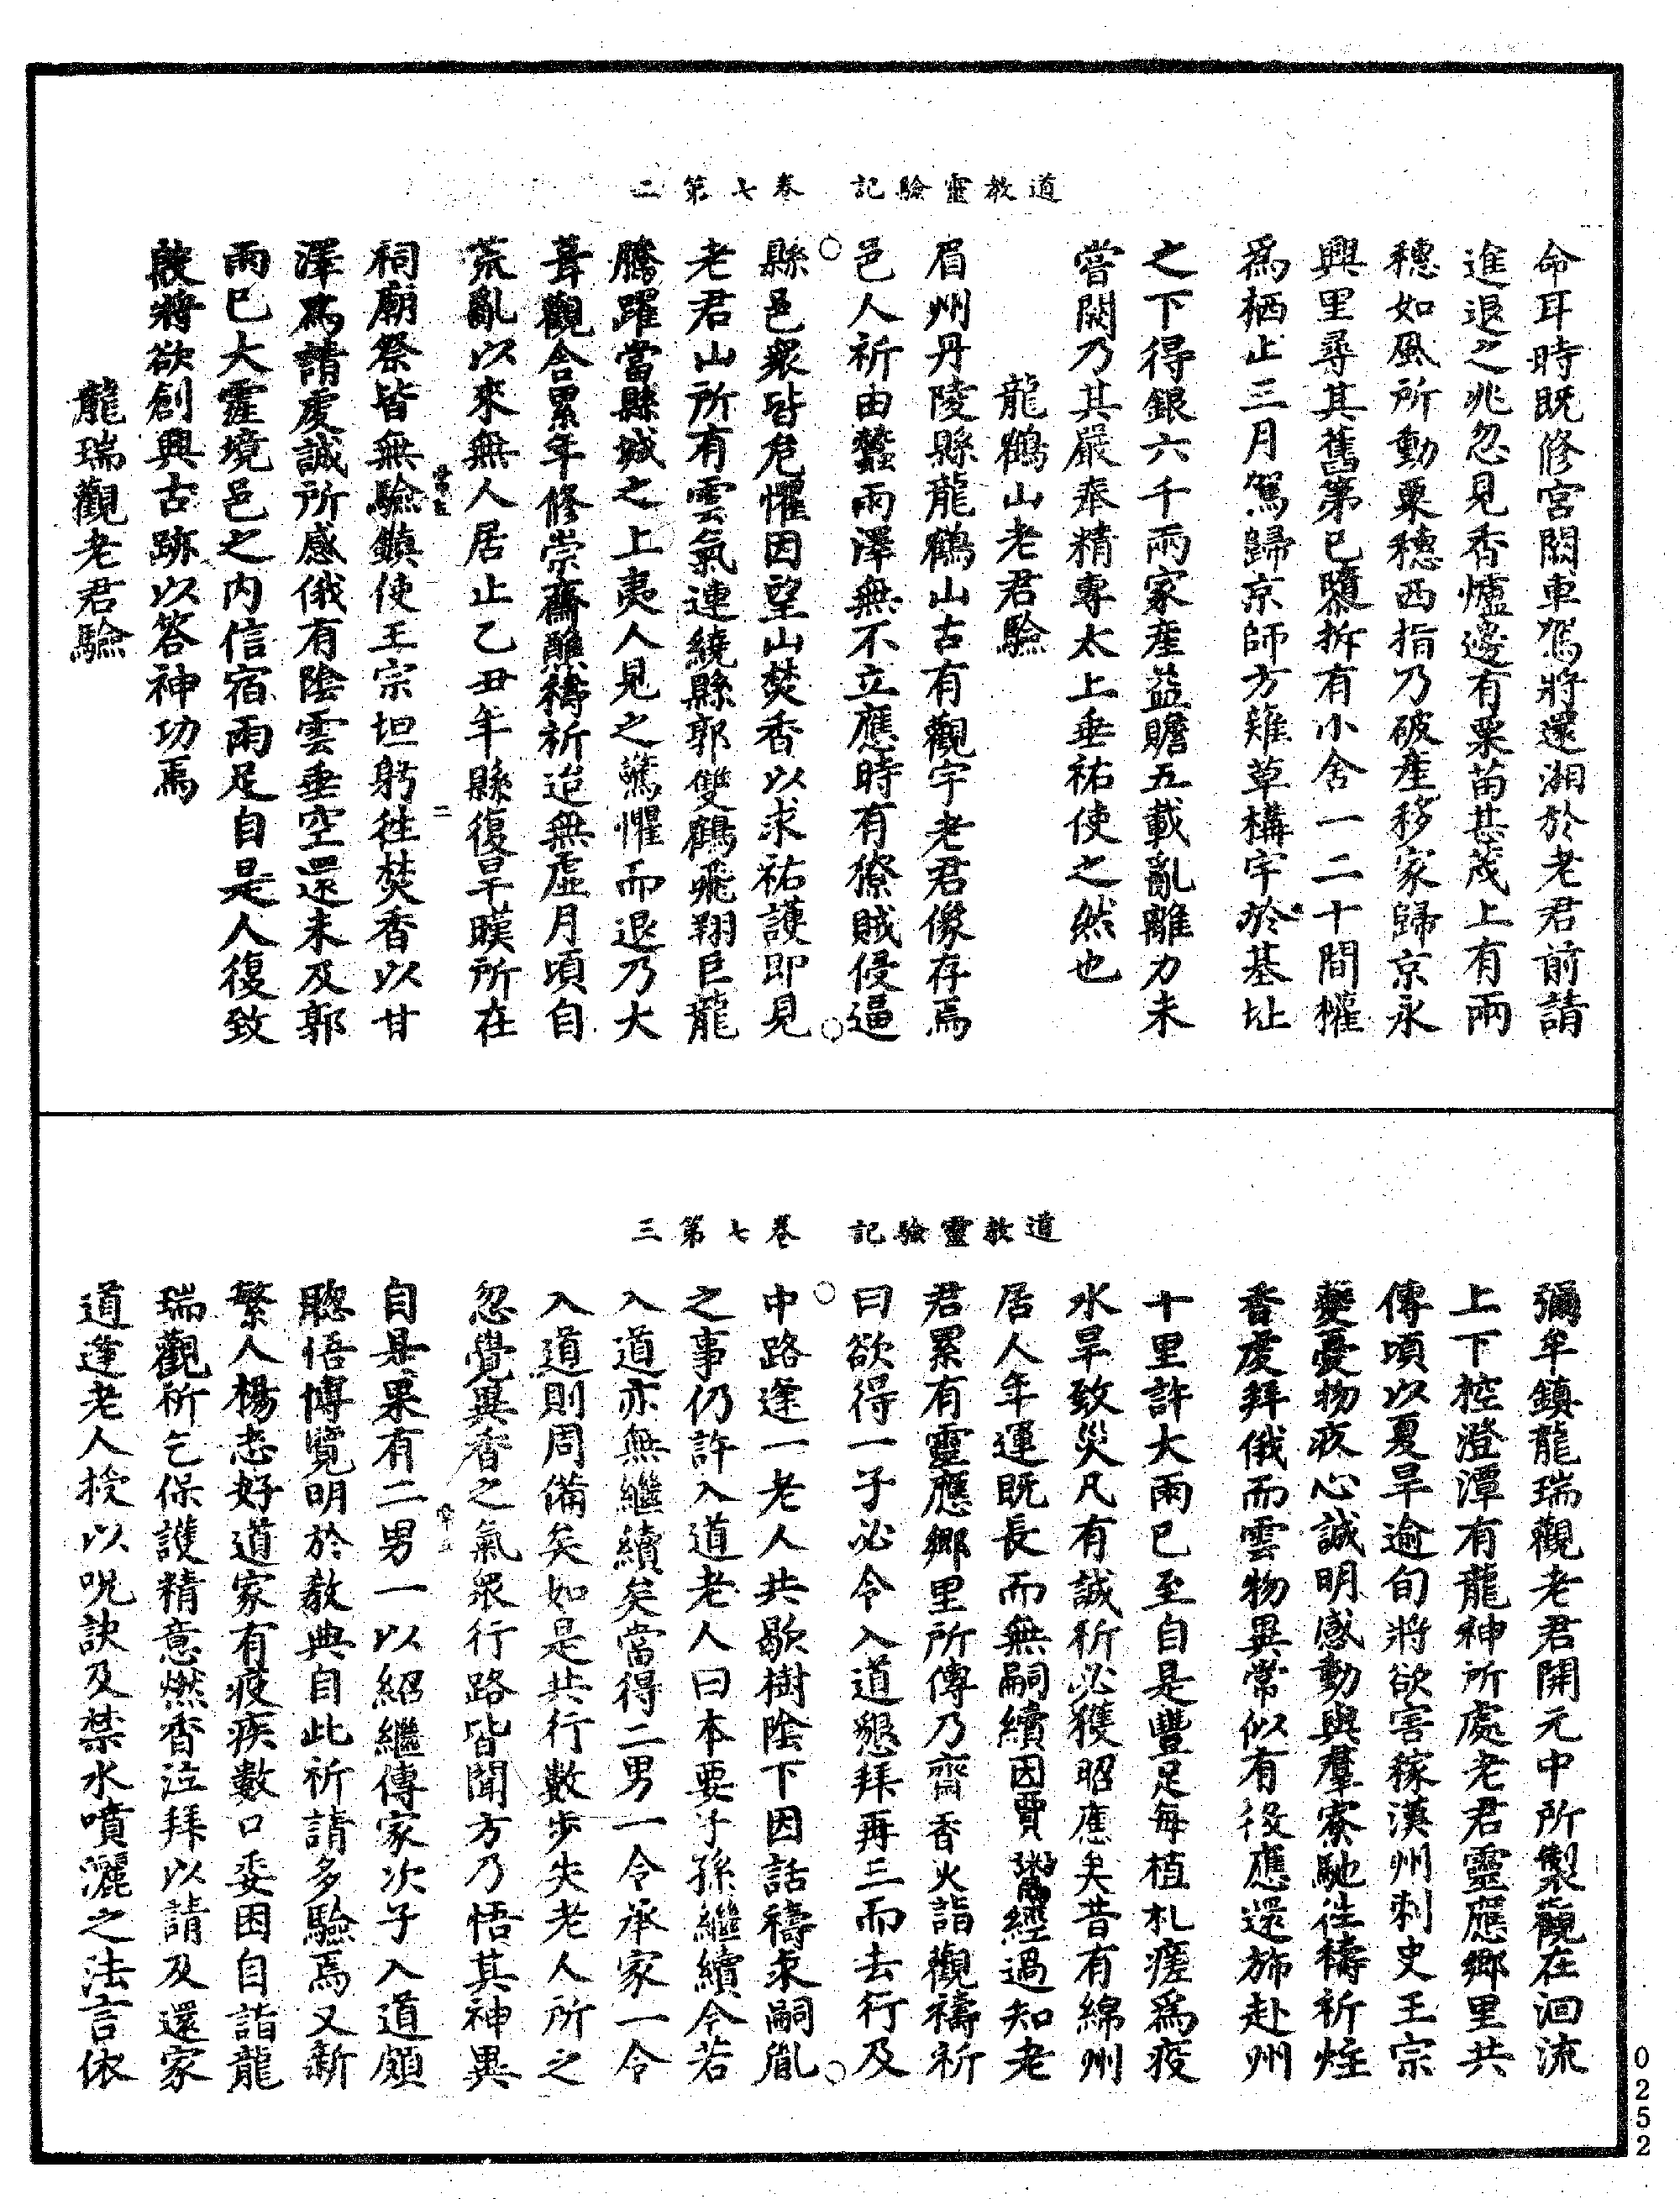 道教靈驗記　卷七第二
命耳時既修宮闕車駕將還湘於老君前請
進退之兆忽見香爐邊有粟苗甚茂上有兩
穗如風所動粟穗西指乃破産移家歸京永
興里尋其舊第已隳拆有小舍一二十間權
爲栖止三月駕歸京師方薙草構宇於基址
之下得銀六千兩家産益贍五載亂離力未
嘗闕乃其嚴奉精專太上垂祐使之然也
龍鶴山老君驗
眉州丹陵縣龍鶴山古有觀宇老君像存焉
邑人祈由蠶雨澤無不立應時有獠賊侵逼
縣邑衆皆危懼因望山焚香以求祐護即見
老君山所有雲氣連繞縣郭雙鶴飛翔巨龍
騰躍當縣城之上夷人見之驚懼而退乃大
葺觀舍累年修崇齋醮禱祈迨無虛月頃自
荒亂以來無人居止乙丑年縣復旱暵所在
二
祠廟祭皆無驗鎮使王宗坦躬往焚香以甘
澤爲請虔誠所感俄有陰雲垂空還未及郭
雨已大霔境邑之内信宿雨足自是人復致
敬將欲創興古跡以答神功焉
龍瑞觀老君驗
道教靈驗記　卷七第三
彌牟鎮龍瑞觀老君開元中所製觀在洄流
上下控澄潭有龍神所處老君靈應鄉里共
傳頃以夏旱逾旬將欲害稼漢州刺史王宗
夔憂物疚心誠明感動與羣寮馳往禱祈炷
香虔拜俄而雲物異常似有役應還旆赴州
十里許大雨已至自是豐足每植札瘥爲疫
水旱致災凡有誠祈必獲昭應矣昔有綿州
居人年運既長而無嗣續因賈鬻經過知老
君累有靈應鄉里所傳乃齎香火詣觀禱祈
曰欲得一子必令入道懇拜再三而去行及
中路逢一老人共歇樹陰下因話禱求嗣胤
之事仍許入道老人曰本要子孫繼續今若
入道亦無繼續矣當得二男一令承家一令
入道則周備矣如是共行數步失老人所之
忽覺異香之氣衆行路皆聞方乃悟其神異
自是果有二男一以紹繼傳家次子入道頗
聰悟博覽明於教典自此祈請多驗焉又新
繁人楊忞好道家有疫疾數口委困自詣龍
瑞觀祈乞保護精意燃香泣拜以請及還家
道逢老人授以呪訣及禁水噴灑之法言依
0252